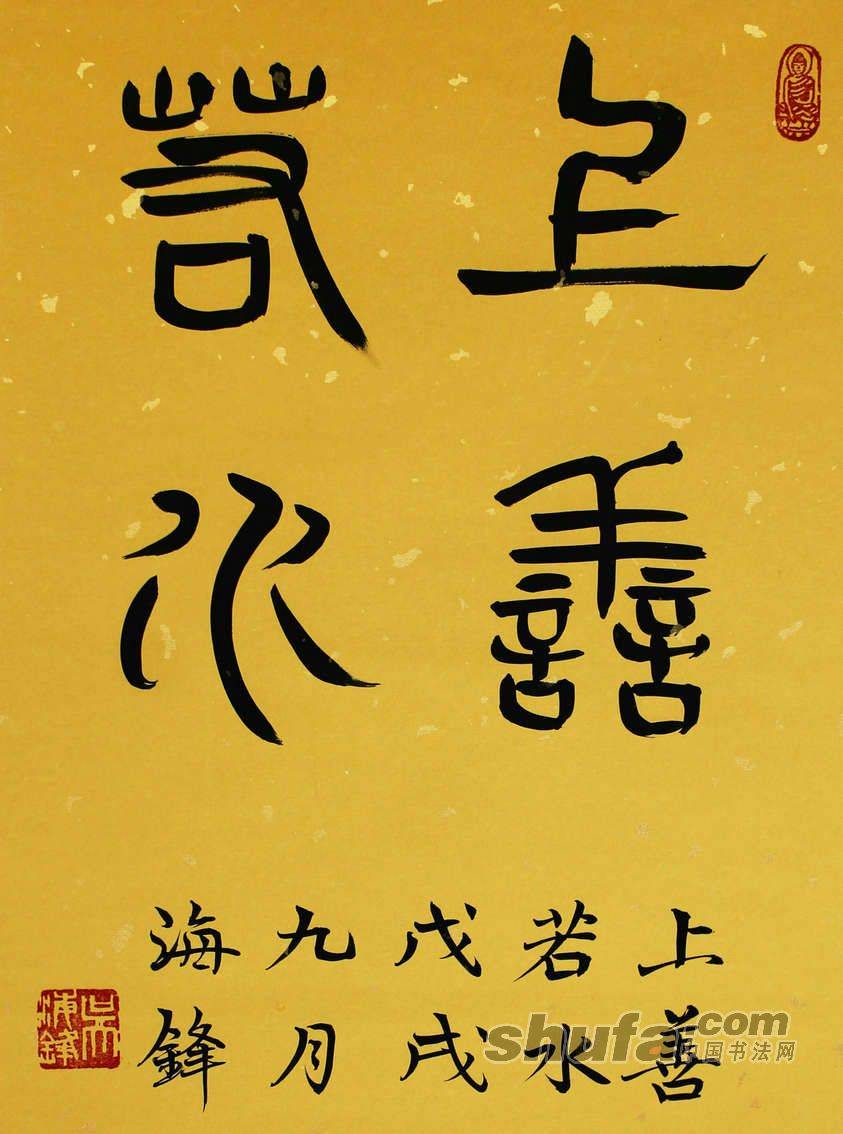 上善
若水
上善
若水
戊戌
九月
海鋒
吴海鋒
shufa.com
中国书法网